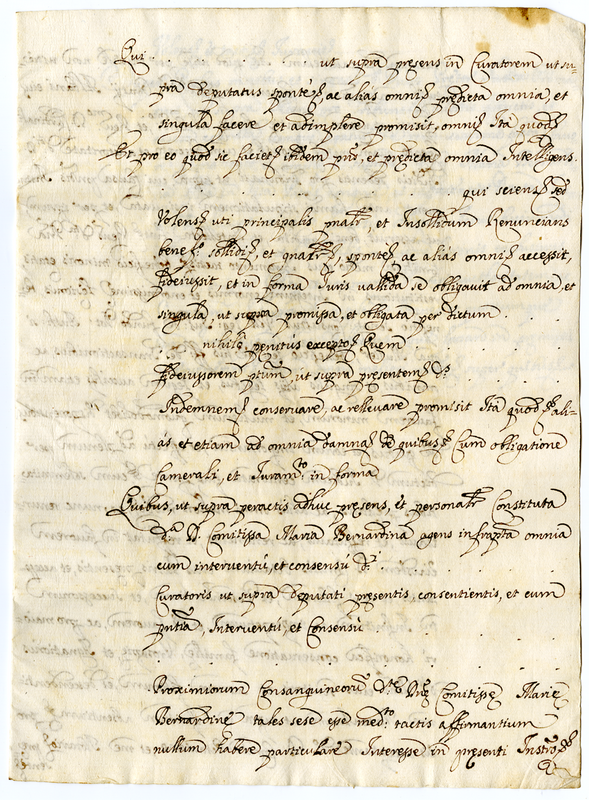 Qui . . . . . ut supra pręsens in Curatorem ut su=
pra deputatus sponte, ac alias omni, prędicta omnia, et
singula facere et adimplere promisit, omni, Ita quod,
Et pro eo quod sic faciet, ibidem pns, et prędicta omnia Intelligens
. . . . . qui sciens, sed
Volens, uti principalis pnalr, et Insollidum Renuncians
benef. sollidi, et, sponte, ac alias omni, accessit,
fideiussit, et in forma Iuris vallida se obligavit ad omnia, et
singula, ut supra promissa, et obligata per dictum .
. . nihilo penitus excepto, Quem
fideiussorem ptum, ut supra presentem, d.
Indemnem, conservare, ac rellevare promisit Ita quod, ali=
ás et etiam de omnia damna, de quibus, Cum obligatione
Camerali, et Iuram.to in forma
Quibus, ut supra peractis adhuc pręsens, et personalr Constituta
d.a D. Comitissa Maria Bernardina agens infrapta omnia
cum interventú, et consensú d.i .
Curatoris ut supra deputati pręsentis, consentientis, et cum
pntia, Interventú, et Consensú . . . .
. . . . .
Proximiorum Consanguineorú d.tę Dnę Comitissę Marię
Bernardinę tales sese esse med.to tactis affirmantium
nullum habere particulare Interesse in presenti Instro,